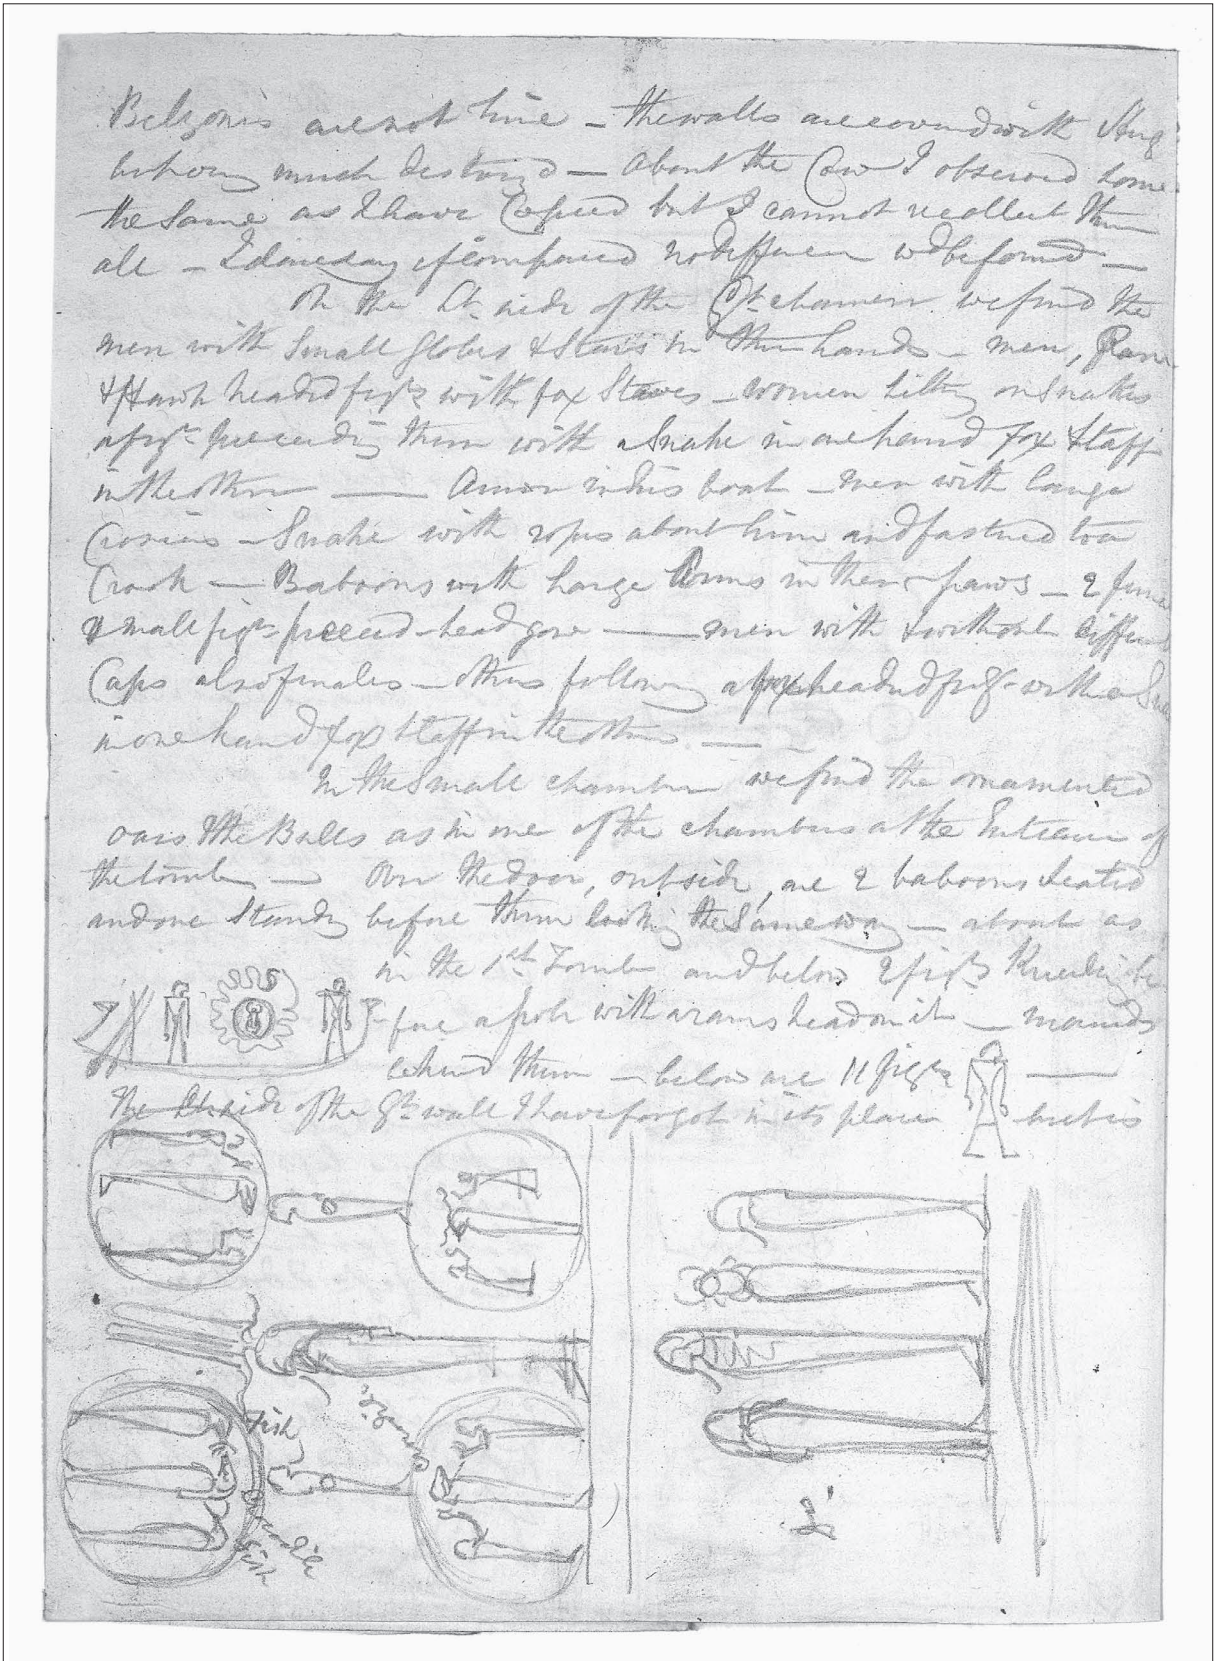 Belzonis are not line – the walls are covered with
but very much destroyed – about the Cow I observed some
the same as I have Copied but I cannot recollect them
all – I dare say if compared no difference wd be found –
On the Lt. side of the Gt. chamber we find the
men with small globes & stars in their hands – men, Ram
& Hawk headed figs with fox Staves – women sitting on Snakes
a figr. preceeding them with a Snake in one hand fox Staff
in the other – Amon in his boat – men with large
Crosiers – Snake with ropes about him and fastned to a
Crook – Baboons with large in their paws – 2
small figrs. preceed – head gone – men with & without different
Caps also females – others following a fox headed figr. with a
in one hand fox staff in the other –
In the Small chamber we find the ornamented
oars & the Bulls as in one of the chambers at the Entrance of
the tomb – Over the door, outside, are 2 baboons seated
and one Standg before them looking the same way – about as
in the 1st Tomb and below 2 figrs Kneeling be
fore a pole with a rams head on it –
behind them – below are 11 figrs –
The Lt. side of the Gt. wall I have forgot in its place but is
Fish
fish